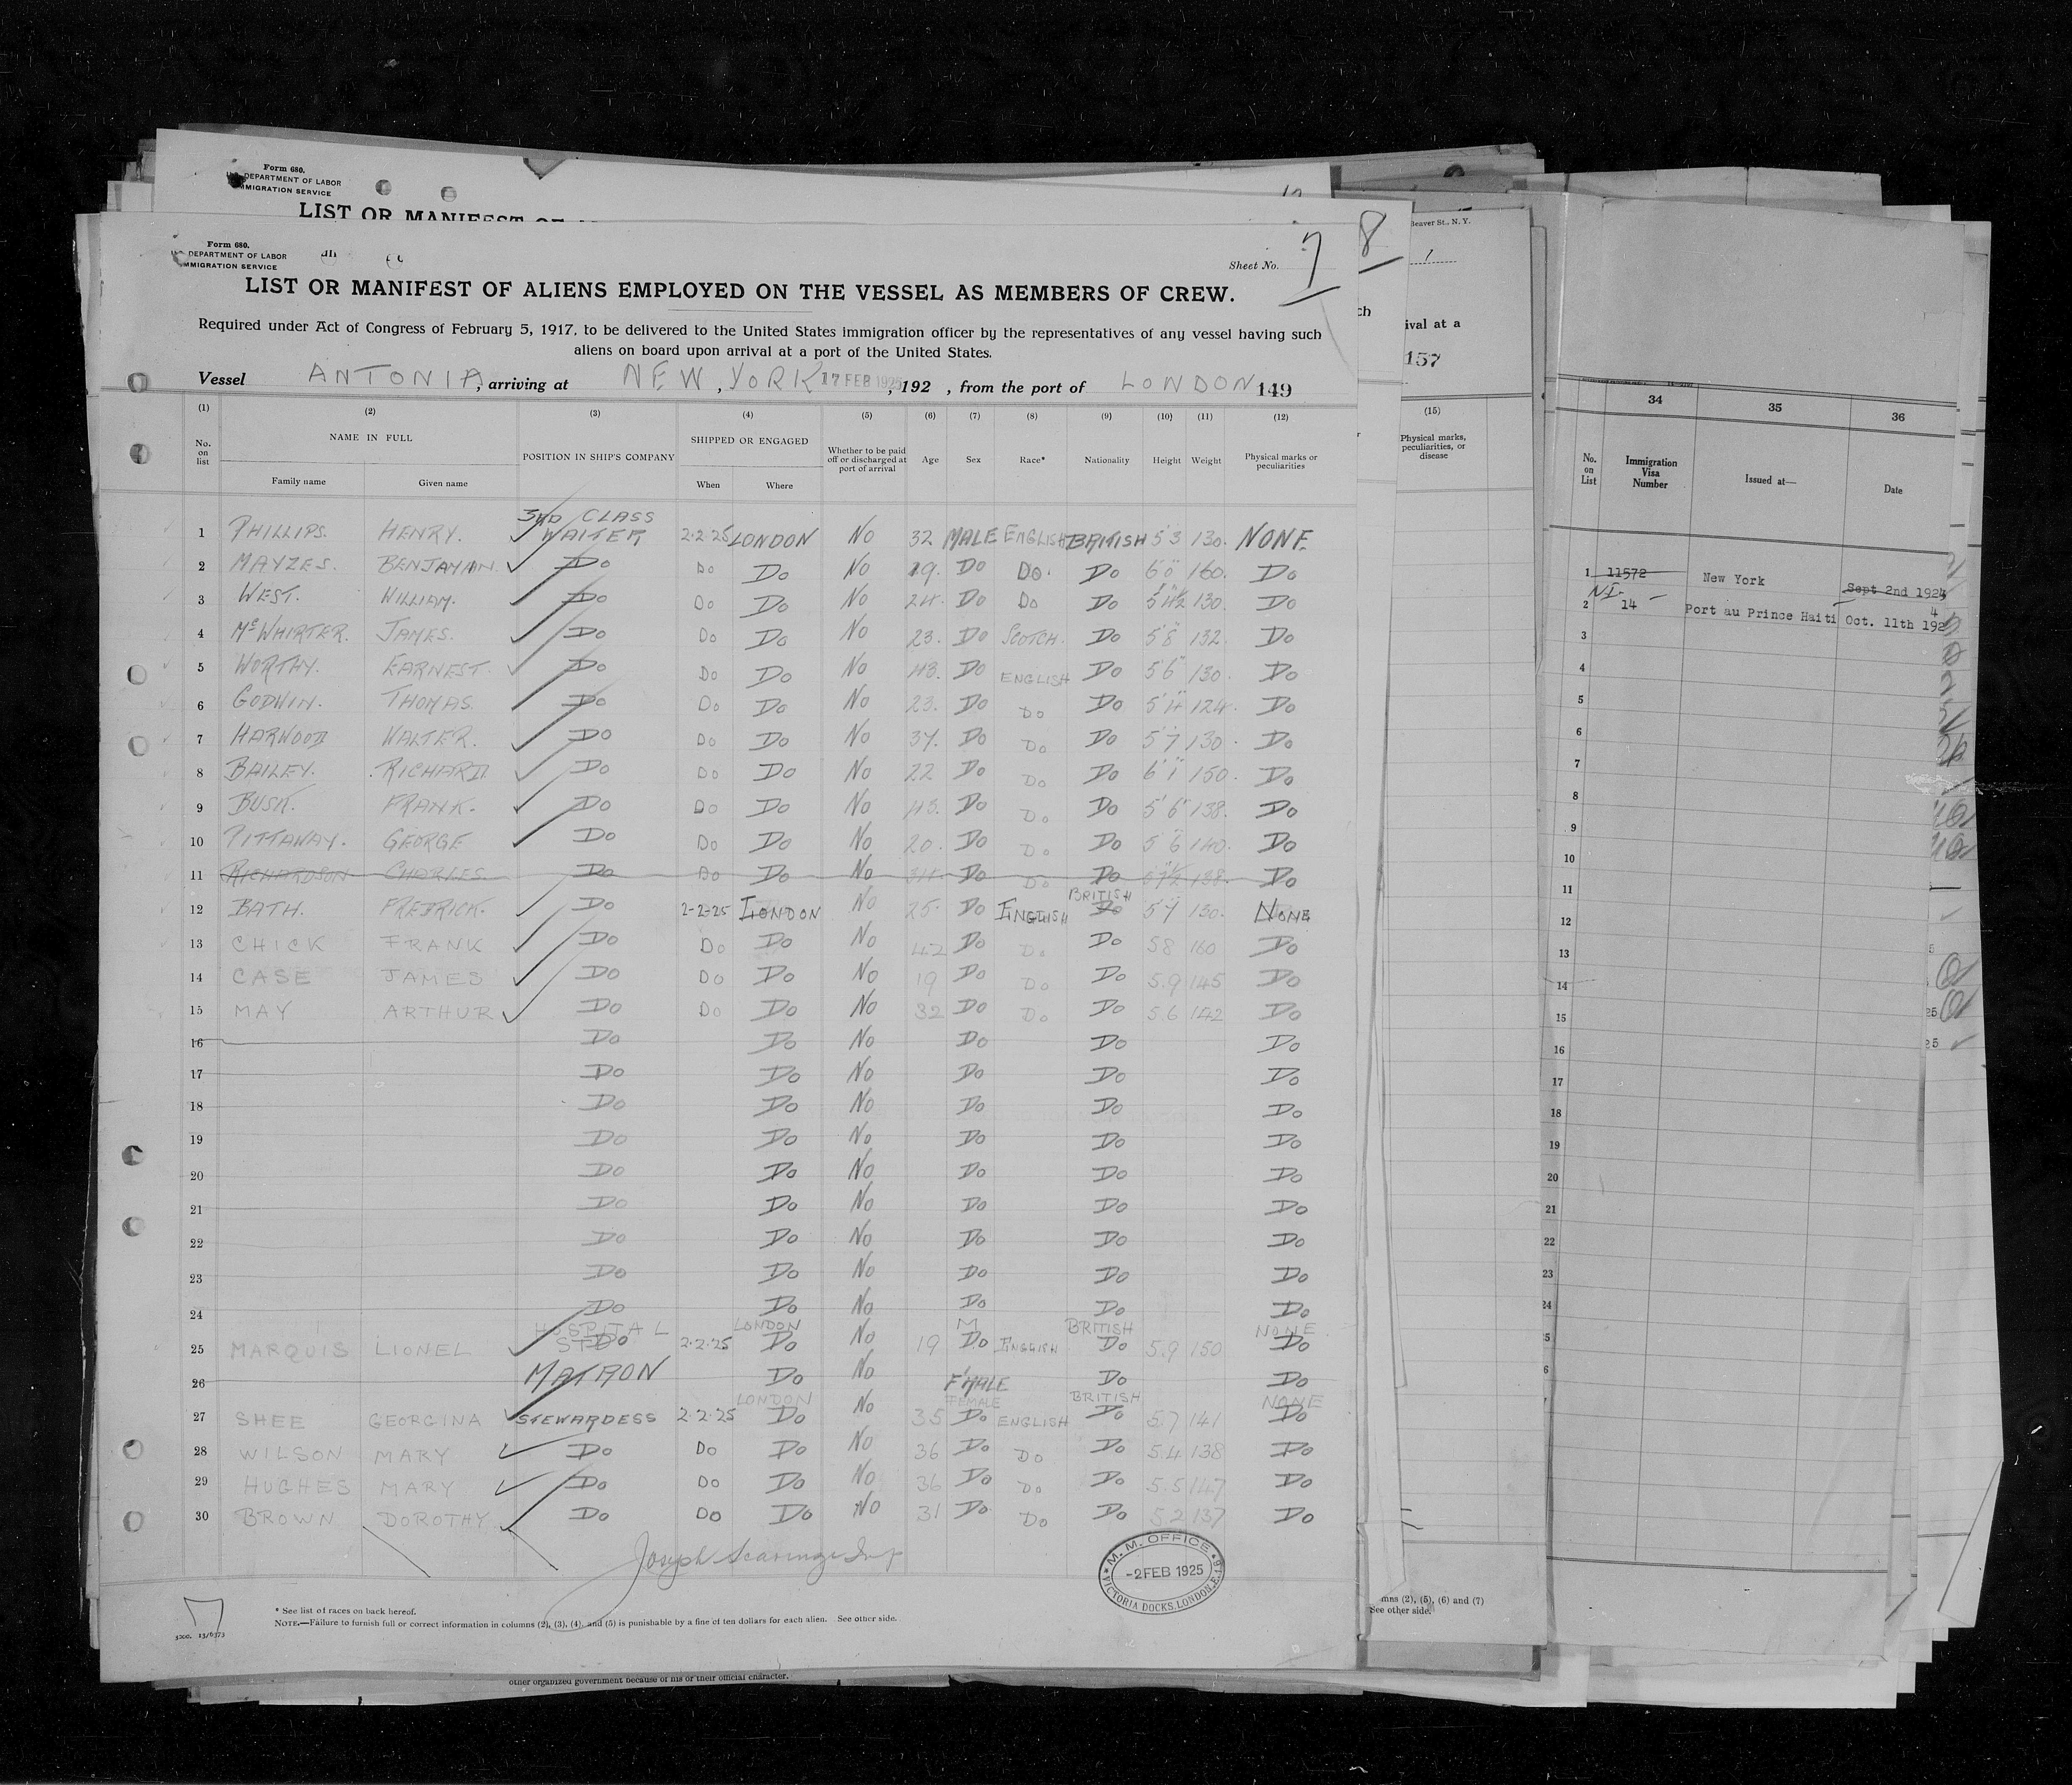 Form 680.
DEPARTMENT OF LABOR
IMMIGRATION SERVICE
LIST OR MANIFEST OF
Form 680.
DEPARTMENT OF LABOR
IMMIGRATION SERVICE
Sheet No. 7
8
LIST OR MANIFEST OF ALIENS EMPLOYED ON THE VESSEL AS MEMBERS OF CREW.
Required under Act of Congress of February 5, 1917, to be delivered to the United States immigration officer by the representatives of any vessel having such
aliens on board upon arrival at a port of the United States.
Vessel ANTONIA, arriving at NEW YORK 17 FEB 1925, 192 , from the port of LONDON 149
(1) (2) (3) (4) (5) (6) (7) (8) (9) (10) (11) (12)
No. on list NAME IN FULL Family name Given name POSITION IN SHIP'S COMPANY SHIPPED OR ENGAGED When Where Whether to be paid off or discharged at port of arrival Age Sex Race* Nationality Height Weight Physical marks or peculiarities
1 PHILLIPS. HENRY. 3RD CLASS WAITER 2.2.25 LONDON No 32 MALE ENGLISH BRITISH 5'3 130. NONE.
2 MAYZES. BENJAMIN. Do Do Do No 19. Do Do. Do 6'0" 160. Do
3 WEST. WILLIAM. Do Do Do No 24. Do Do Do 5'4½ 130. Do
4 McWHIRTER. JAMES. Do Do Do No 23. Do SCOTCH. Do 5'8" 132. Do
5 WORTHY. EARNEST. Do Do Do No 43. Do ENGLISH Do 5'6" 130. Do
6 GODWIN. THOMAS. Do Do Do No 23. Do Do Do 5'4" 124. Do
7 HARWOOD WALTER. Do Do Do No 37. Do Do Do 5'7 130. Do
8 BAILEY. RICHARD. Do Do Do No 22 Do Do Do 6'1" 150. Do
9 BUSK. FRANK. Do Do Do No 43. Do Do Do 5'6" 138. Do
10 PITTAWAY. GEORGE Do Do Do No 20. Do Do Do 5'6 140. Do
11 RICHARDSON CHARLES. Do Do Do No 34. Do Do Do 138. Do
12 BATH. FREDRICK. Do 2-2-25 LONDON No 25. Do ENGLISH BRITISH Do 5'7 130. NONE
13 CHICK FRANK Do Do Do No 42 Do Do Do 5 8 160 Do
14 CASE JAMES Do Do Do No 19 Do Do Do 5.9 145 Do
15 MAY ARTHUR Do Do Do No 32 Do Do Do 5.6 142 Do
16 Do Do No Do Do Do
17 Do Do No Do Do Do
18 Do Do No Do Do Do
19 Do Do No Do Do Do
20 Do Do No Do Do Do
21 Do Do No Do Do Do
22 Do Do No Do Do Do
23 Do Do No Do Do Do
24 Do Do No Do Do Do
25 MARQUIS LIONEL HOSPITAL Do 2.2.25 LONDON Do No 19 M Do ENGLISH BRITISH Do 5.9 150 NONE Do
26 MATRON Do No F'MALE Do Do
27 SHEE GEORGINA STEWARDESS 2.2.25 LONDON Do No 35 FEMALE Do ENGLISH BRITISH Do 5.7 141 NONE Do
28 WILSON MARY Do Do Do No 36 Do Do Do 5.4 138 Do
29 HUGHES MARY Do Do Do No 36 Do Do Do 5.5 147 Do
30 BROWN DOROTHY Do Do Do No 31 Do Do Do 5.2 137 Do
Joseph Scaringe Insp
M. M. OFFICE
-2 FEB 1925
VICTORIA DOCKS, LONDON, E.
7
* See list of races on back hereof.
NOTE.—Failure to furnish full or correct information in columns (2), (3), (4), and (5) is punishable by a fine of ten dollars for each alien. See other side.
other organized government because of his or their official character.
Beaver St., N. Y.
1
ch
ival at a
157
(15)
Physical marks, peculiarities, or disease
mns (2), (5), (6) and (7)
See other side.
34 35 36
No. on List Immigration Visa Number Issued at— Date
1 11572 New York Sept 2nd 1924
2 NI- 14 Port au Prince Haiti Oct. 11th 1924
3
4
5
6
7
8
9
10
11
12
13
14
15
16
17
18
19
20
21
22
23
24